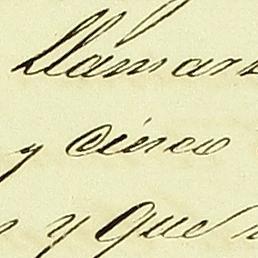 llamar
y cinco
y que